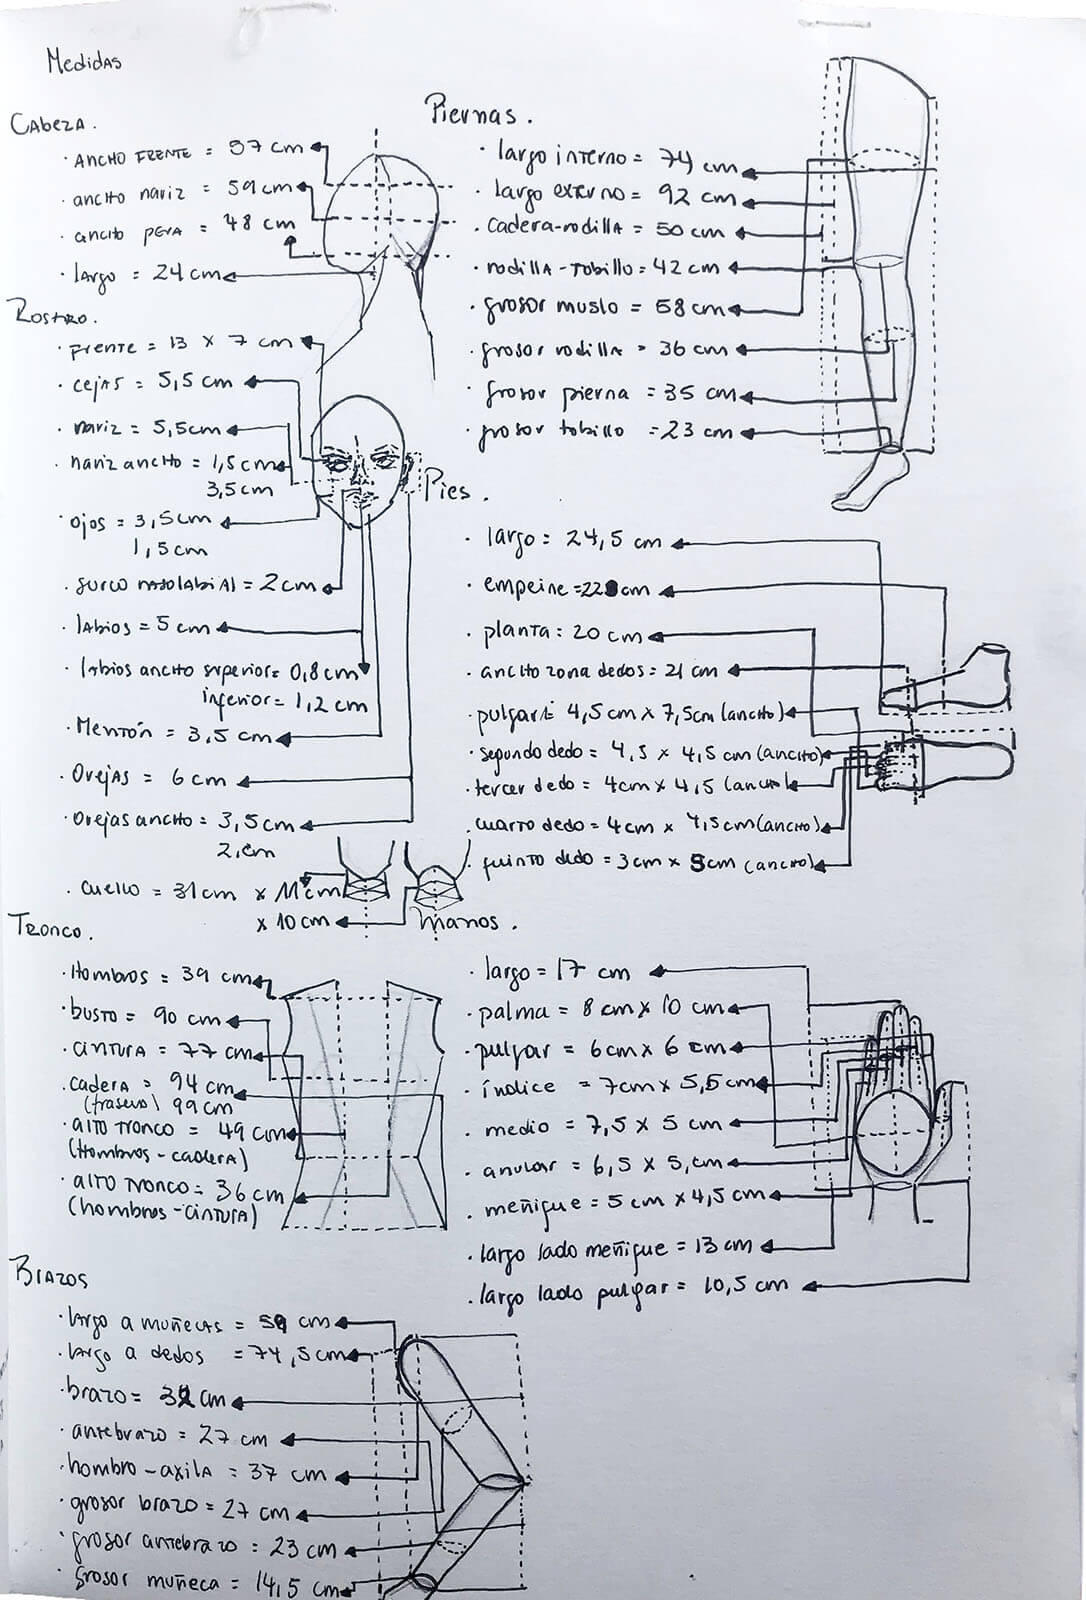 Medidas
Cabeza.
· Ancho frente = 57 cm
ancho nariz = 59 cm
· ancho pera = 48 cm
· largo = 24 cm
Rostro.
· frente = 13 x 7 cm
· cejas = 5,5 cm
· nariz = 5,5cm
· nariz ancho = 1,5 cm
3,5 cm
· ojos = 3,5cm
1,5 cm
· surco nasolabial = 2 cm
· labios = 5 cm
· labios ancho superior = 0,8 cm
inferior = 1,2 cm
· Mentón = 3,5 cm
· Orejas = 6 cm
· Orejas ancho = 3,5 cm
2,cm
· cuello = 31 cm x 11 cm
x 10 cm
Tronco.
· Hombros = 39 cm
· busto = 90 cm
· cintura = 77 cm
· cadera = 94 cm
(trasero) 99 cm
· alto tronco = 49 cm
(Hombros - cadera)
· alto tronco = 36 cm
(hombros - cintura)
Brazos
· largo a muñecas = 59 cm
· largo a dedos = 74,5 cm
· brazo = 32 cm
· antebrazo = 27 cm
· hombro - axila = 37 cm
· grosor brazo = 27 cm
· grosor antebrazo = 23 cm
· grosor muñeca = 14,5 cm
Piernas.
· largo interno = 74 cm
· largo externo = 92 cm
· cadera-rodilla = 50 cm
· rodilla - tobillo = 42 cm
· grosor muslo = 58 cm
· grosor rodilla = 36 cm
· grosor pierna = 35 cm
· grosor tobillo = 23 cm
Pies.
· largo = 24,5 cm
· empeine = cm
· planta = 20 cm
· ancho zona dedos = 21 cm
· pulgar = 4,5cm x 7,5cm (ancho)
· segundo dedo = 4,5 x 4,5 cm (ancho)
· tercer dedo = 4cm x 4,5 (ancho)
· cuarto dedo = 4cm x 4,5cm (ancho)
· quinto dedo = 3 cm x 5cm (ancho)
Manos.
· largo = 17 cm
· palma = 8 cm x 10 cm
· pulgar = 6 cm x 6 cm
· índice = 7cm x 5,5 cm
· medio = 7,5 x 5 cm
· anular = 6,5 x 5, cm
· meñique = 5 cm x 4,5 cm
· largo lado meñique = 13 cm
· largo lado pulgar = 10,5 cm